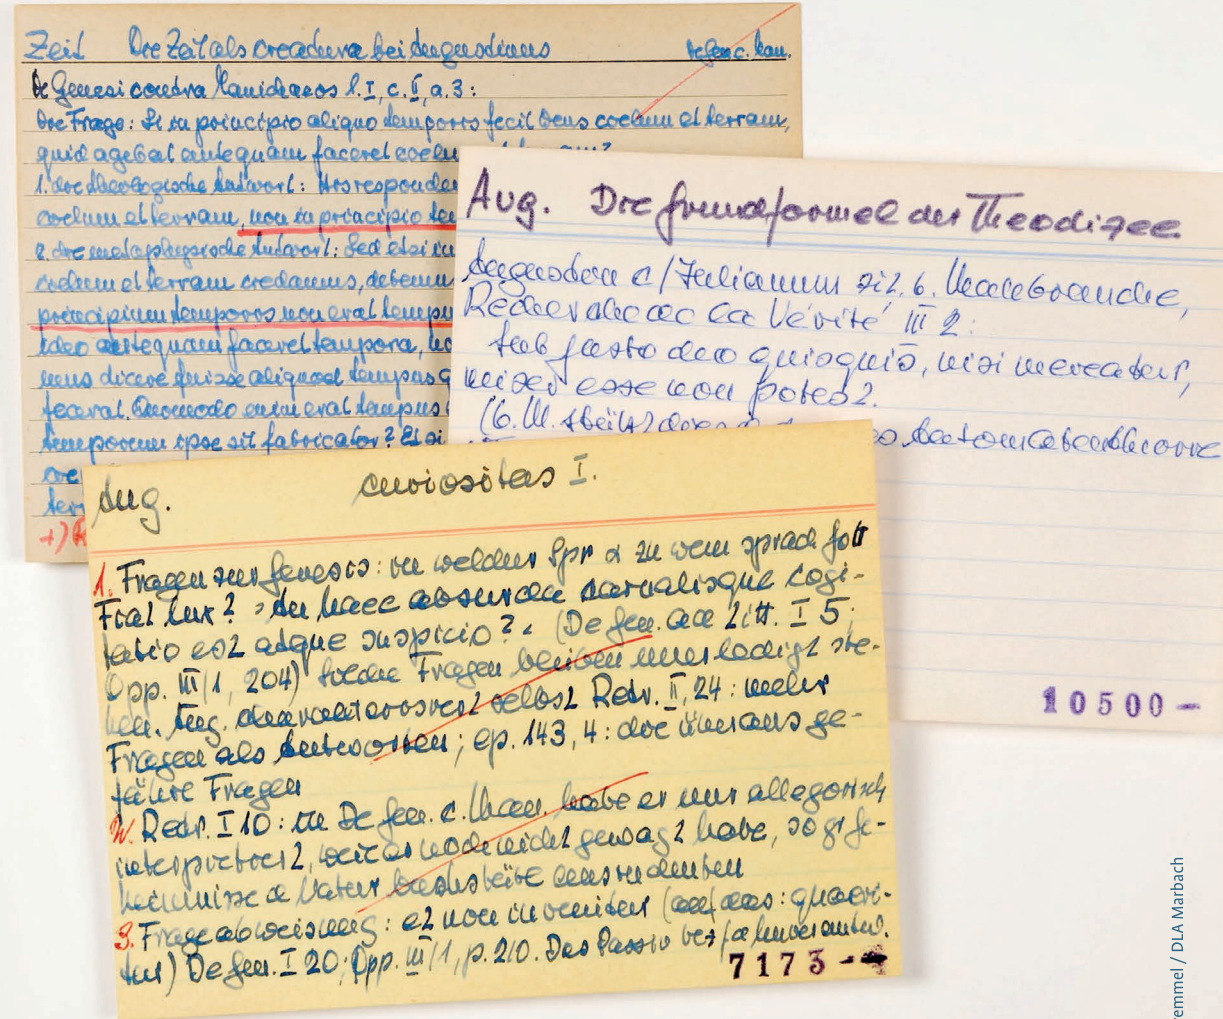 Zeit Die Zeit als creatura bei Augustinus De Gen. c. Man.
De Genesi contra Manichaeos l. I, c. II, a. 3:
Die Frage: Si in principio aliquo temporis fecit Deus coelum et terram,
quid agebat antequam faceret coelu
1. die theologische Antwort: Hos responde
coelum et terram, non in principio te
2. die metaphysische Antwort: Sed etsi in
coelum et terram credamus, debemu
principium temporis non erat tempu
ideo antequam faceret tempora, no
mus dicere fuisse aliquod tempus q
fecerat. Quomodo enim erat tempus
temporum ipse sit fabricator? Et si
coe
terr
+)
Aug. Die Grundformel der Theodizee
Augustin c/Julianum zit. b. Malebranche,
Recherche de la Vérité III 2:
Sub justo deo quisquis, nisi mereatur,
miser esse non potest.
(b. M.
Aug. curiositas I.
1. Fragen zur Genesis: in welcher Spr & zu wem sprach Gott
Fiat lux? "An haec absurda carnalisque cogi-
tatio est atque suspicio?" (De Gen. ad Litt. I 5;
Opp. III/1, 204) Solche Fragen bleiben unerledigt ste-
hen. Aug. charakterisiert selbst Retr. II, 24: mehr
Fragen als Antworten; ep. 143, 4: die überaus ge-
fährl Fragen
2. Retr. I 10: in De Gen. c. Man. habe er nur allegorisch
interpretiert, weil er noch nicht gewagt habe, so gr Ge-
heimnisse d Natur buchstäbl auszudeuten
3. Frageabweisung: et non invenitur (auf das: quaeri-
tur) De Gen. I 20; Opp. III/1, p. 210. Das Passiv
7173-
10500-
remmel / DLA Marbach